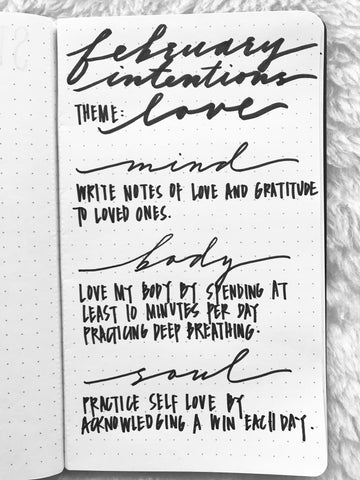 february
intentions
THEME: love
mind
WRITE NOTES OF LOVE AND GRATITUDE
TO LOVED ONES.
body
LOVE MY BODY BY SPENDING AT
LEAST 10 MINUTES PER DAY
PRACTICING DEEP BREATHING.
soul
PRACTICE SELF LOVE BY
ACKNOWLEDGING A WIN EACH DAY.